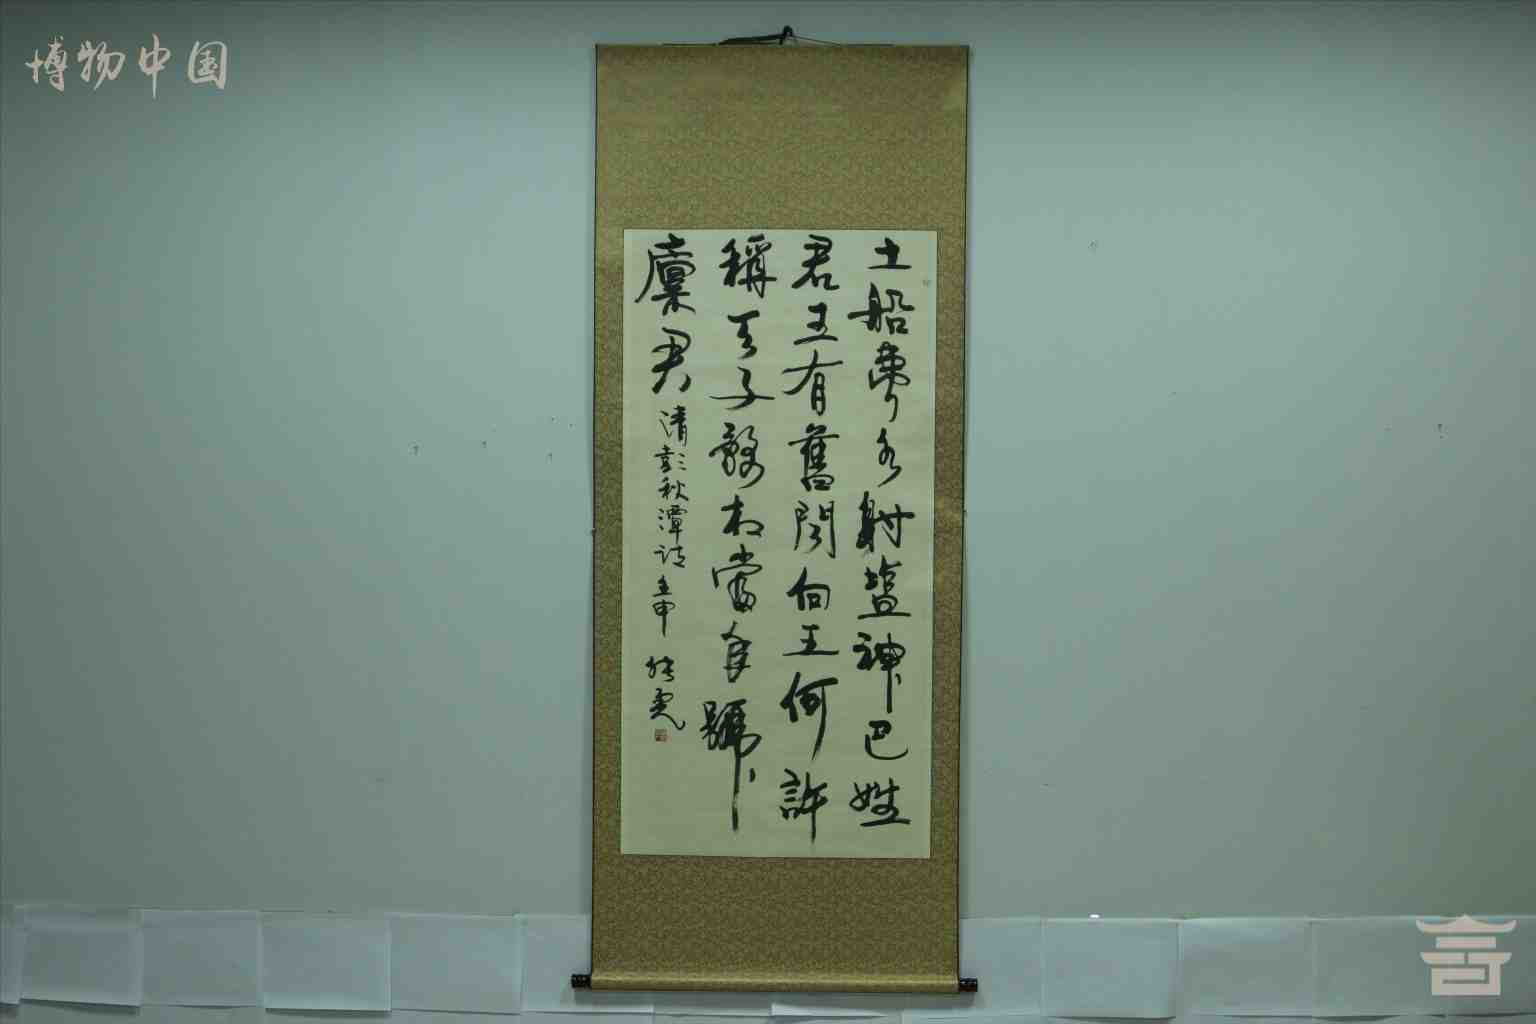 博物中国
土船夢水射盐神巴姓
君王有舊聞向王何許
稱天子敢相當年號
廩君 清彭秋潭詩 壬申